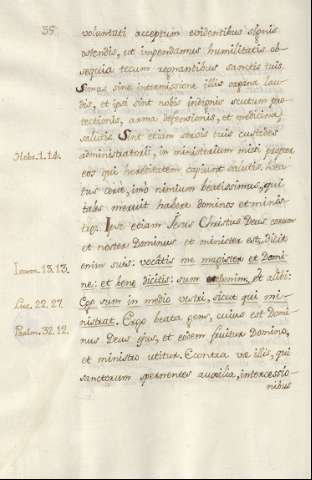 35
voluntati acceptum evidentibus signis
ostendis, ut impendamus humilitatis ob-
sequia tecum regnantibus sanctis tuis.
sine intermissione illis carmina lau-
dis, et ipsi sint nobis indignis scutum pro-
tectionis, arma defensionis, et medicina
salutis. Sint etiam servis tuis custodes
Hebr. 1. 14. administratorii, in ministerium missi propter
eos qui hereditatem capiunt salutis. Bea-
tus erit, imo nimium beatissimus, qui
tales meruit habere dominos et minis-
tros. Ipse etiam Jesus Christus Deus eorum
et noster Dominus et minister est, dicit
Ioann. 13. 13. enim suis: vocatis me magister et Domi-
ne: et bene dicitis: sum etenim. Et alibi:
Luc. 22. 27. Ego sum in medio vestri, sicut qui mi-
nistrat. Ergo beata gens, cuius est Domi-
Psalm. 32. 12. nus Deus ejus, et eodem fruitur Domino,
et ministro utitur. Econtra vae illis, qui
sanctorum spernentes auxilia, intercessio-
nibus